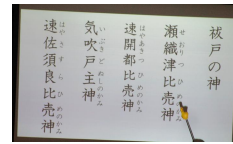 祓戸の神
瀬織津比売神
せおりつひめのかみ
速開都比売神
はやあきつひめのかみ
気吹戸主神
いぶきどぬしのかみ
速佐須良比売神
はやさすらひめのかみ